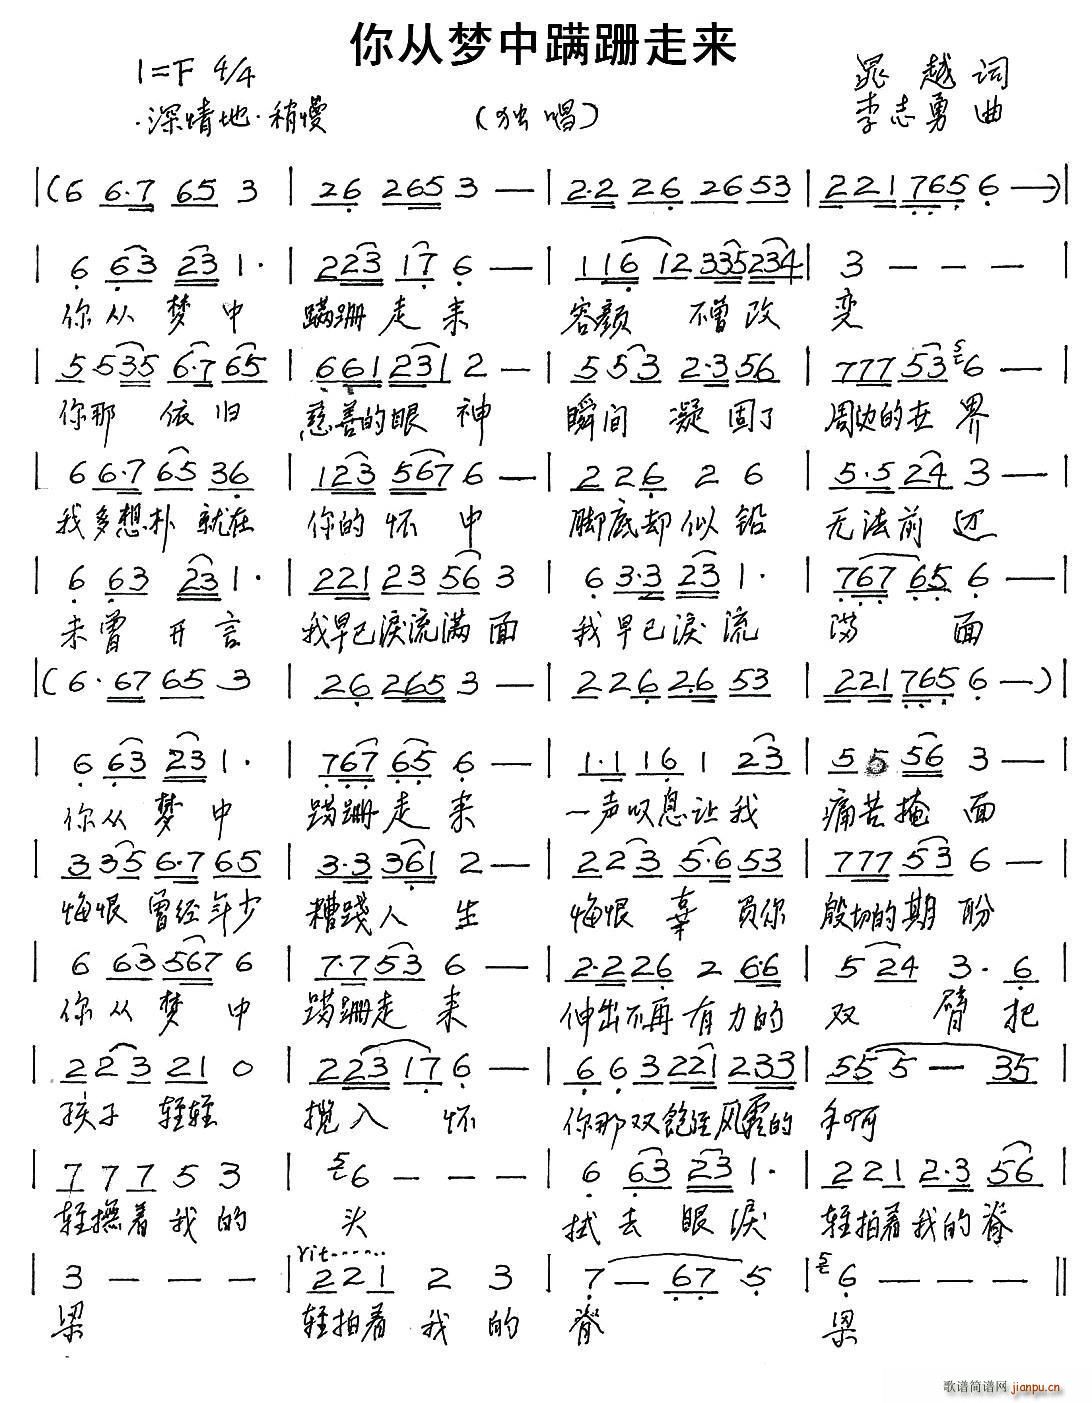 你从梦中蹒跚走来
1=F 4/4
·深情地·稍慢
(独唱)
晁越 词
李志勇 曲
|(6 6·7 65 3 | 26 265 3 — | 2·2 26 2653 | 221 765 6 —)|
| 6 63 23 1· | 223 17 6 — | 116 12 335 234 | 3 — — — |
你从梦中 蹒跚走来 容颜 不曾改 变
| 5 535 6·7 65 | 661 231 2 — | 55 3 2·3 56 | 777 53 56 — |
你那 依旧 慈善的眼神 瞬间 凝固了 周边的世界
| 6 6·7 65 36 | 123 567 6 — | 2 26 2 6 | 5·5 24 3 — |
我多想扑 就在 你的怀中 脚底却似铅 无法前迈
| 6 63 23 1· | 221 23 56 3 | 6 3·3 23 1· | 767 65 6 — |
未曾开言 我早已淚流满面 我早已淚流 满面
|(6·67 65 3 | 26 265 3 — | 2 26 2·6 53 | 221 765 6 —)|
| 6 63 23 1· | 767 65 6 — | 1·1 16 1 23 | 5 5 56 3 — |
你从梦中 蹒跚走来 一声叹息让我 痛苦掩面
| 3 35 6·7 65 | 3·3 361 2 — | 2 23 5·6 53 | 777 53 6 — |
悔恨曾经年少 糟踐人生 悔恨辜负你 殷切的期盼
| 6 63 567 6 | 7·7 53 6 — | 2·2 26 2 6·6 | 5 24 3· 6 |
你从梦中 蹒跚走来 伸出不再有力的 双臂把
| 2 23 21 0 | 223 17 6 — | 6 63 221 233 | 55 5 — 35 |
孩子 轻轻 揽入怀 你那双饱经风霜的 手啊
| 7 7 7 5 3 | 56 — — — | 6 63 23 1· | 2 21 2·3 56 |
轻撫着我的 头 拭去眼淚 轻拍着我的脊
rit······
| 3 — — — | 2 21 2 3 | 7 — 67 5 | 56 — — — ‖
梁 轻拍着我的 脊 梁
歌谱简谱网 jianpu.cn